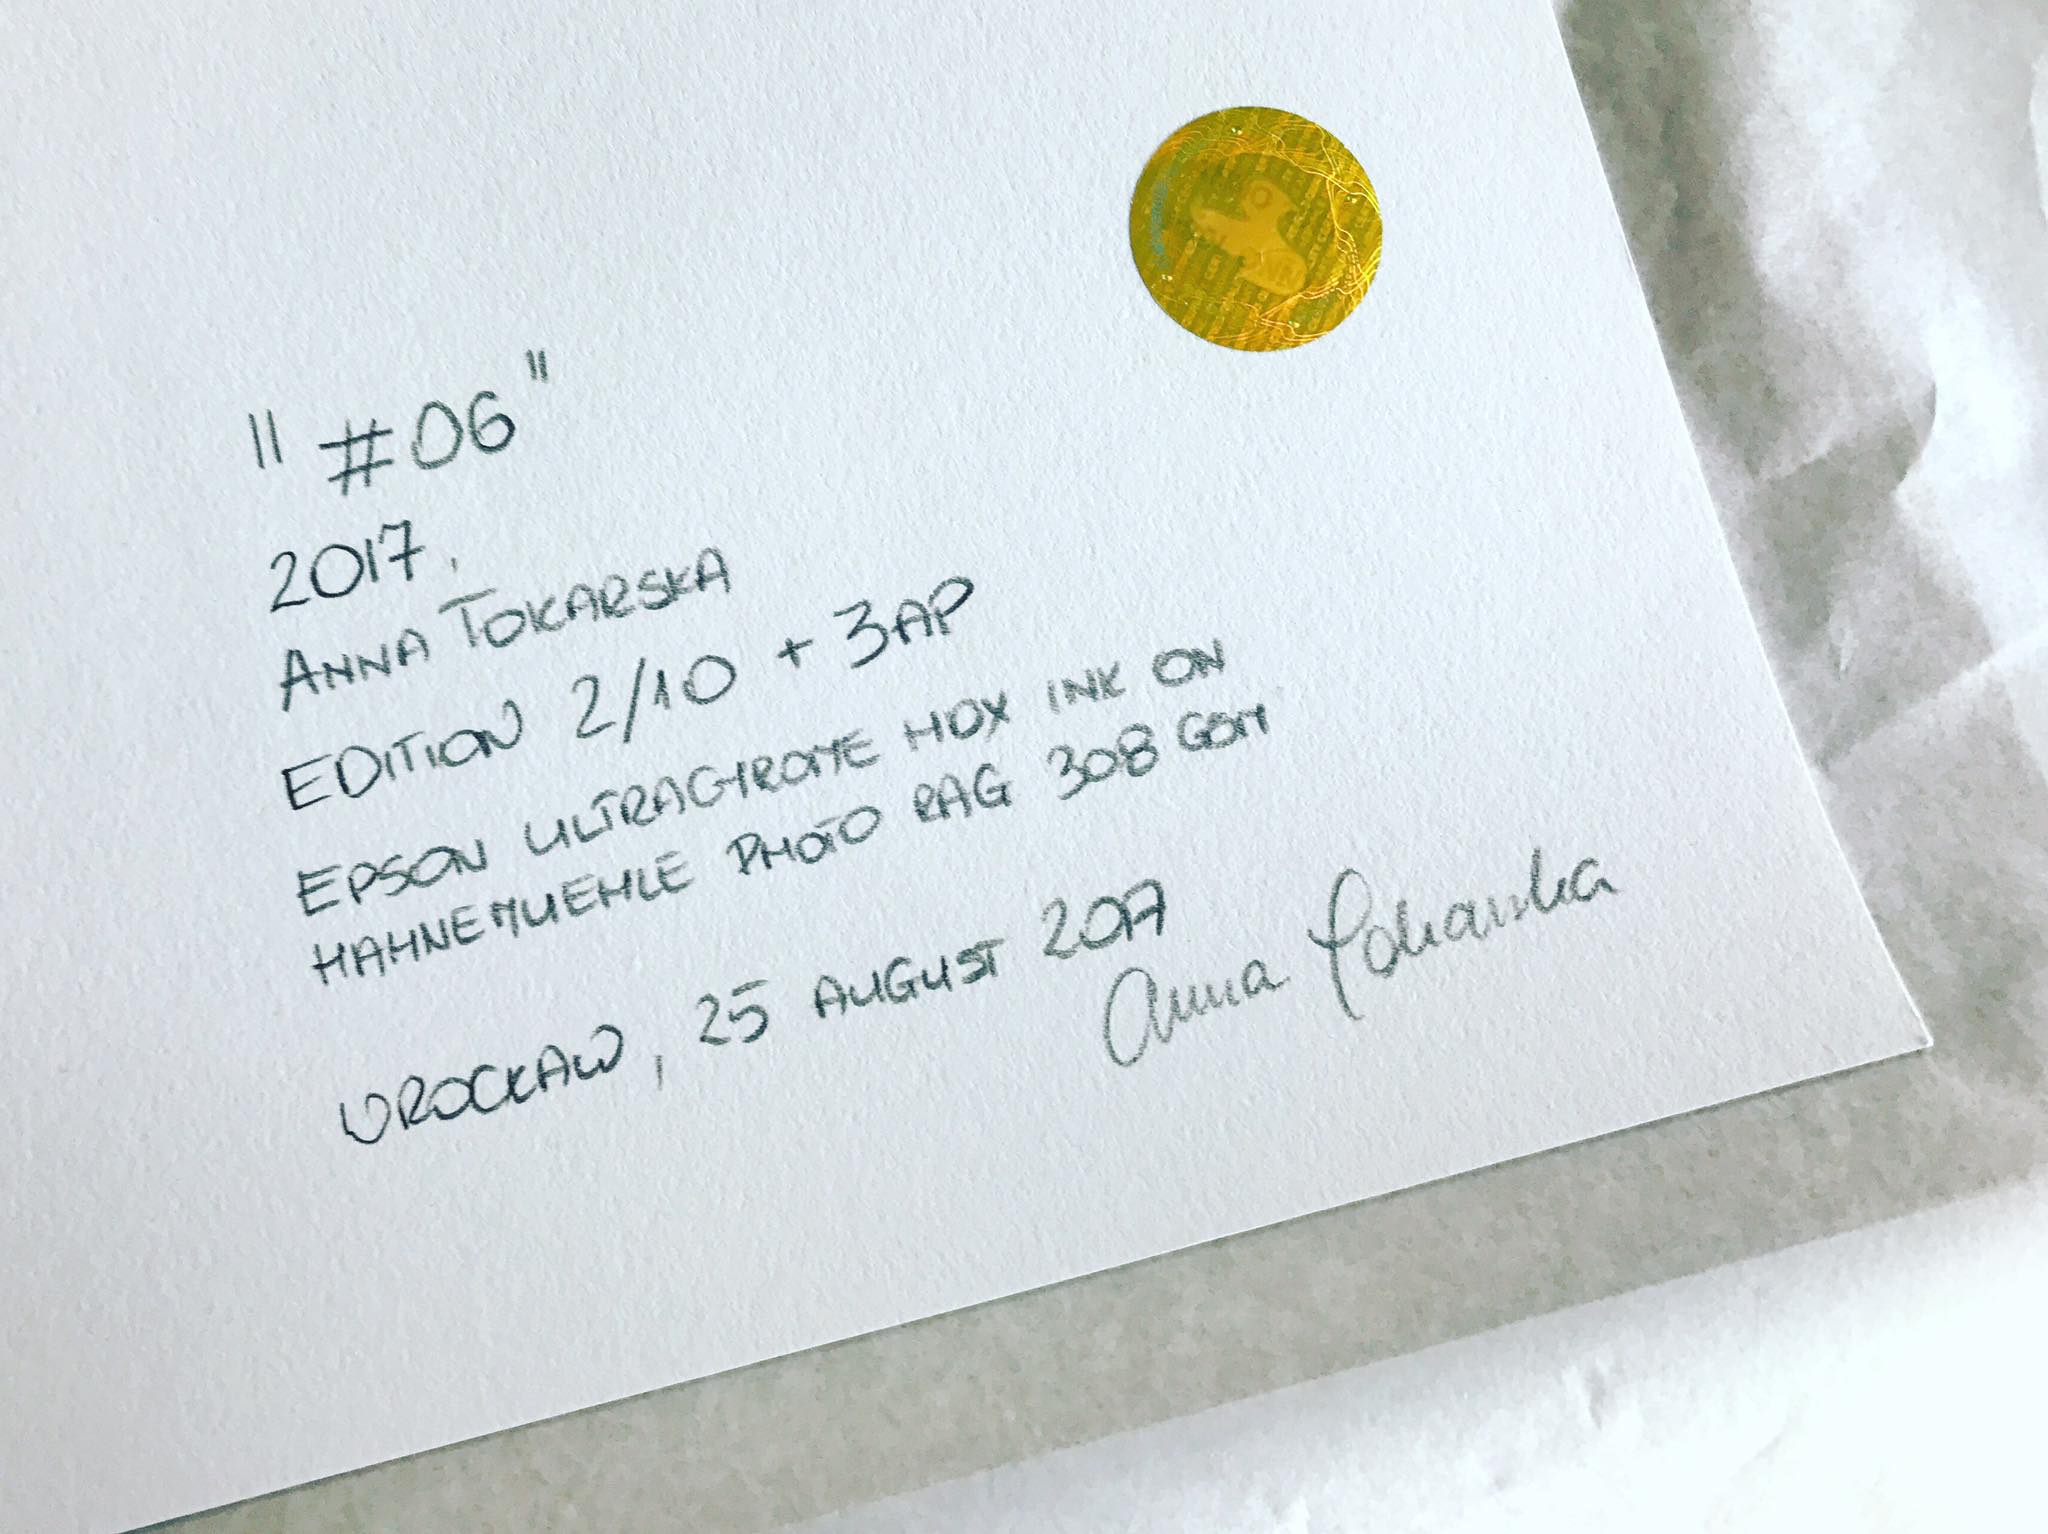 "#06"
2017.
ANNA TOKARSKA
EDITION 2/10 + 3AP
EPSON ULTRACHROME HDX INK ON
HAHNEMUEHLE PHOTO RAG 308 GSM
WROCŁAW, 25 AUGUST 2017
Anna Tokarska